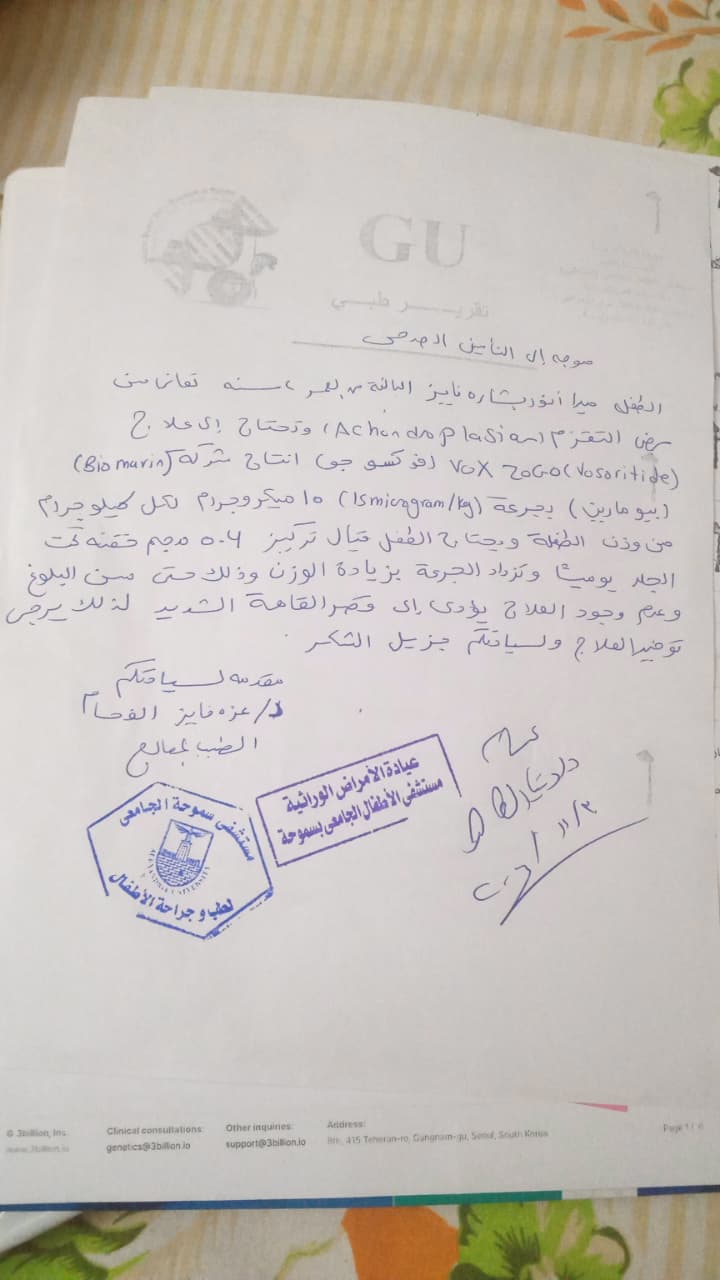 GU
تقريـــر طبـــي
موجه إلى التأمين الصحى
الطفلة ميرا أنور بشاره فايز البالغة من العمر سنه تعانى من
مرض التقزم (Achondroplasia) وتحتاج إلى علاج
VOXZOGO (Vosoritide) (فوكسو جو) انتاج شركة (Biomarin)
(بيو مارين) بجرعة (15microgram/kg) ١٥ ميكروجرام لكل كيلوجرام
من وزن الطفلة ويحتاج الطفل فيال تركيز ٠.٤ مجم حقنه تحت
الجلد يوميًا وتزداد الجرعة بزيادة الوزن وذلك حتى سن البلوغ
وعدم وجود العلاج يؤدى إلى قصر القامة الشديد لذلك يرجى
توفير العلاج ولسيادتكم جزيل الشكر.
مقدمه لسيادتكم
د/ عزه فايز الفحام
الطبيب المعالج
عيادة الأمراض الوراثية
مستشفى الأطفال الجامعى بسموحة
مستشفى سموحة الجامعى
ALEXANDRIA UNIVERSITY
لطب و جراحة الأطفال
© 3billion, Inc.
www.3billion.io
Clinical consultations:
genetics@3billion.io
Other inquiries:
support@3billion.io
Address:
415 Teheran-ro, Gangnam-gu, Seoul, South Korea
Page 1 /